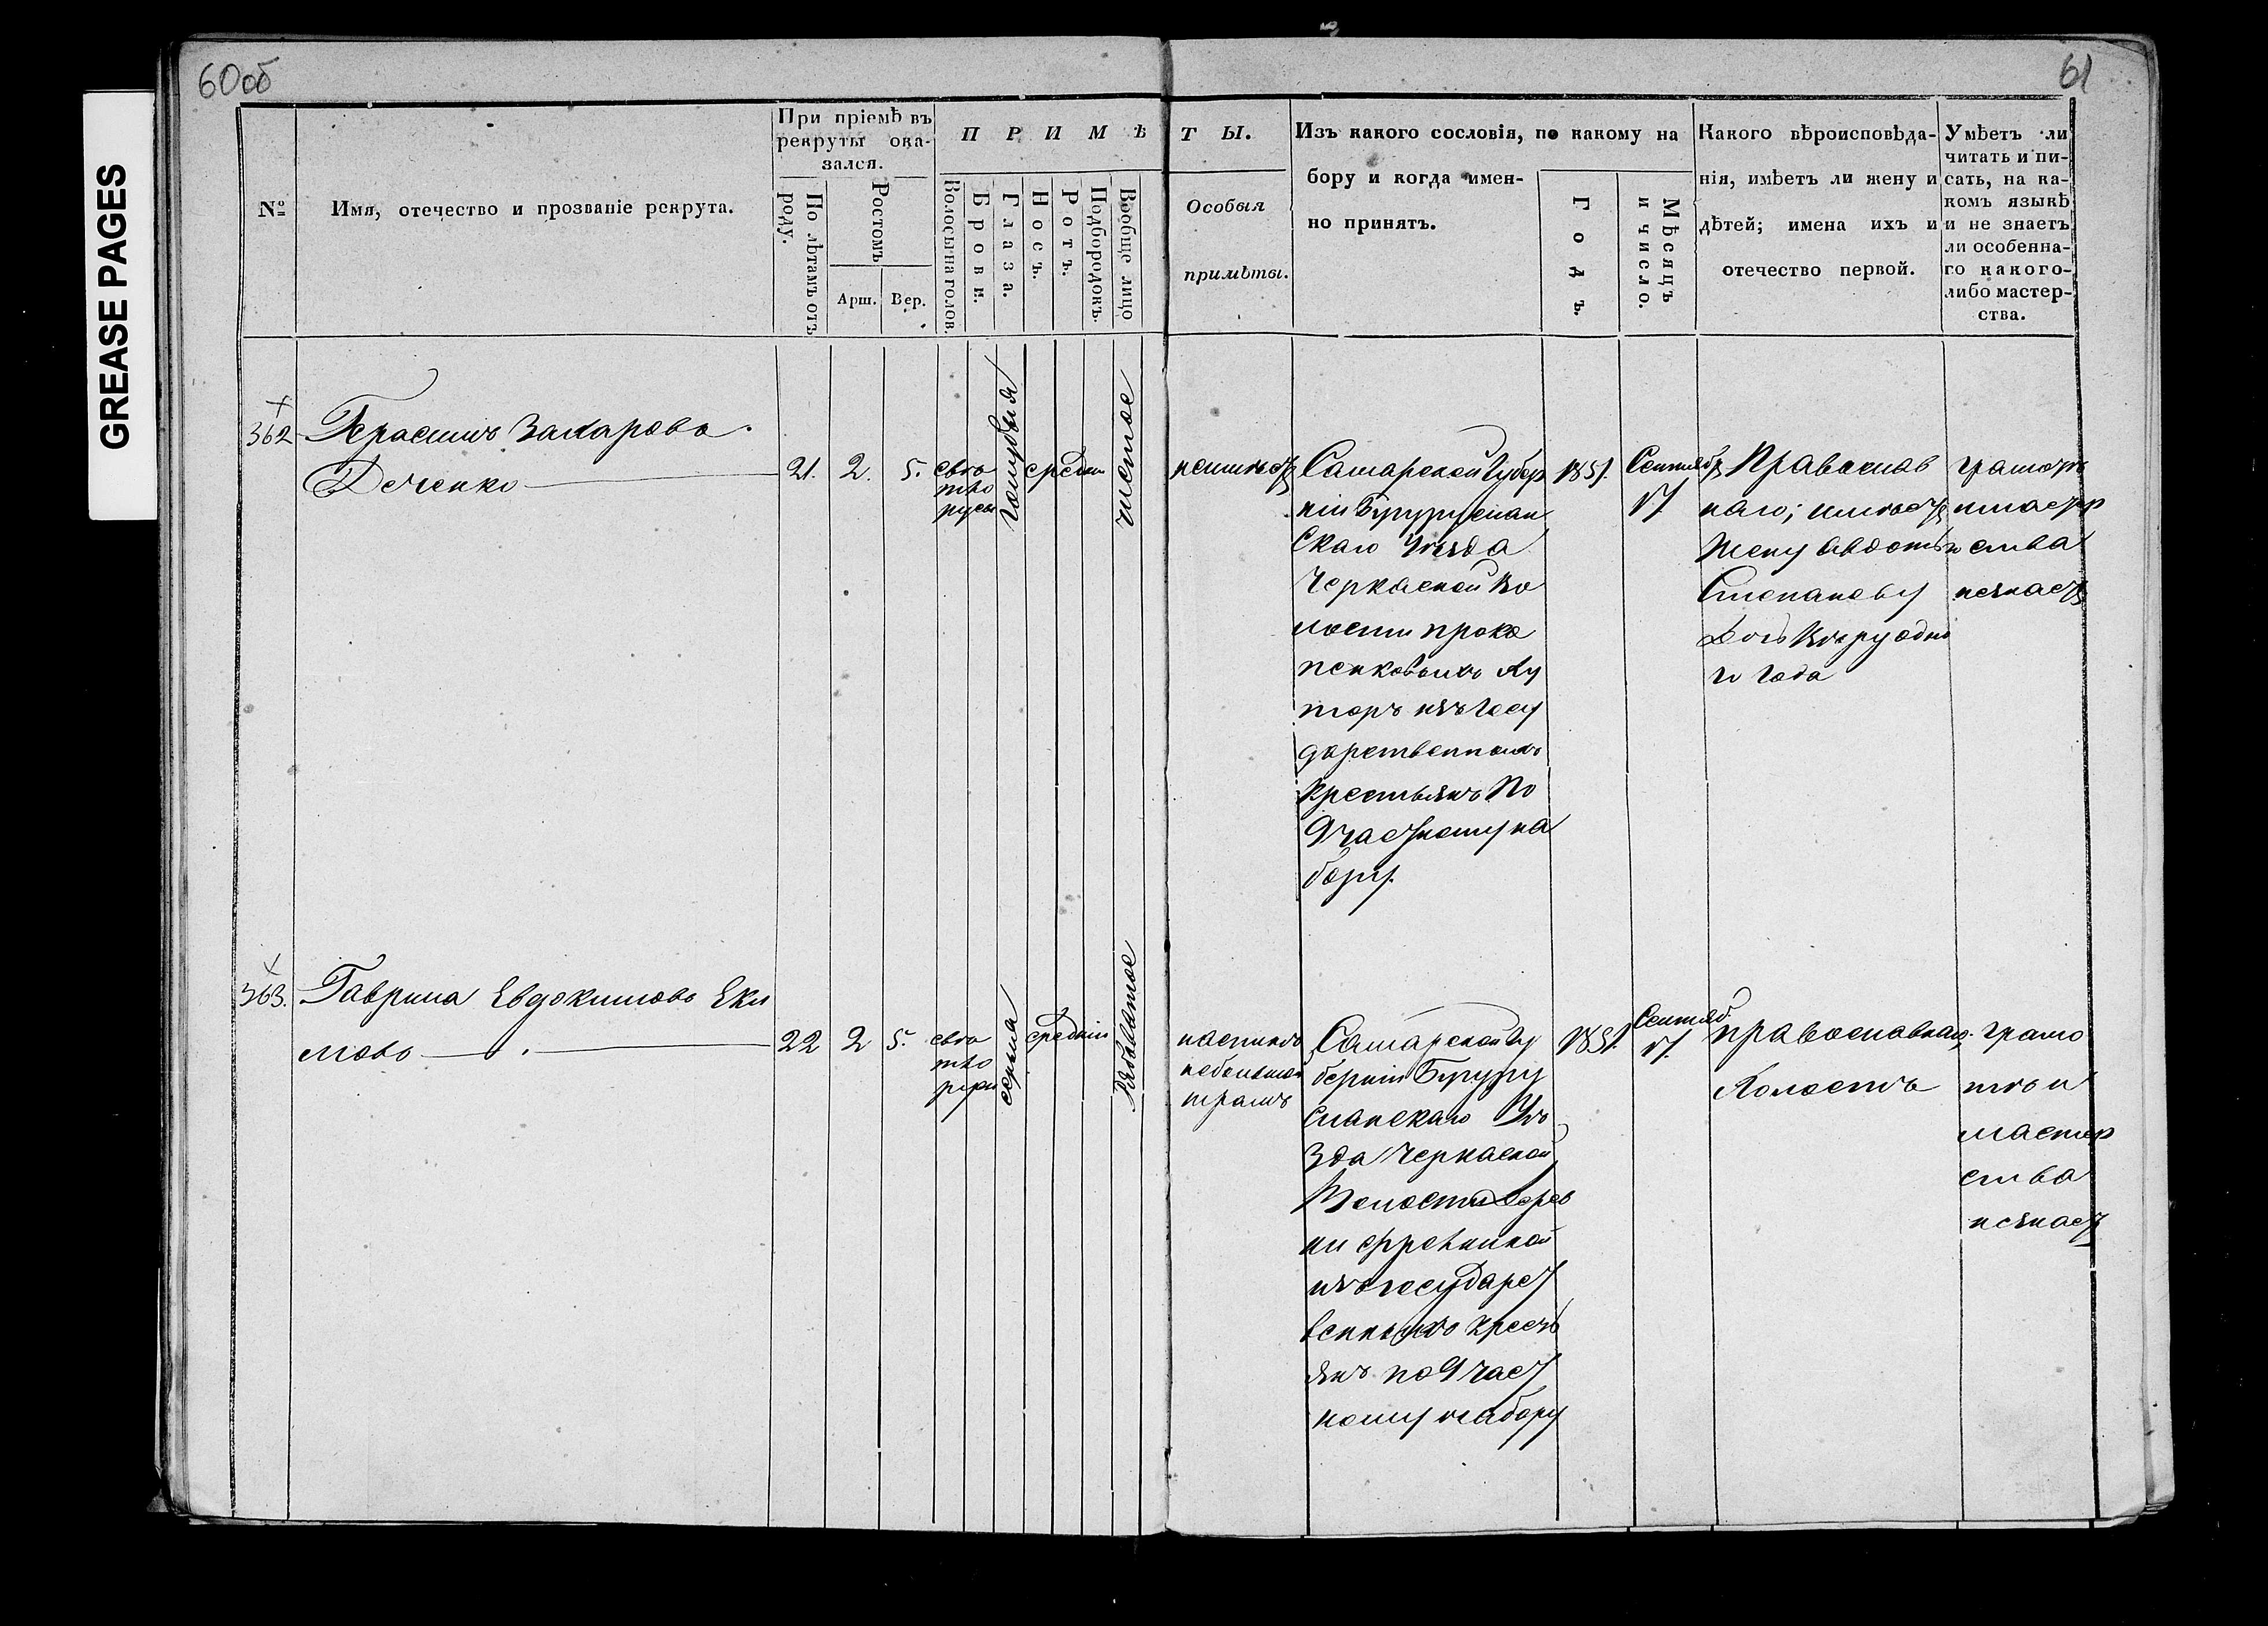 60об
61
GREASE PAGES
№
Имя, отечество и прозваніе рекрута.
При пріемѣ въ
рекруты ока-
зался.
По лѣтамъ отъ
роду.
Ростомъ
Арш. Вер.
ПРИМѢТЫ.
Волосы на голов.
Брови.
Глаза.
Носъ.
Ротъ.
Подбородокъ.
Вообще лицо
Особыя
примѣты.
Изъ какого сословія, по какому на
бору и когда имен-
но принятъ.
Годъ.
Мѣсяцъ
и число.
Какого вѣроисповѣда-
нія, имѣетъ ли жену и
дѣтей; имена ихъ и
отечество первой.
Умѣетъ ли
читать и пи-
сать, на ка-
комъ языкѣ
и не знаетъ
ли особенна-
го какого-
либо мастер-
ства.
362
Герасимъ Захаровъ
Деченко
21. 2. 5.
свѣ
тло
русы
голубыя
средни
чистое
неимѣетъ
Самарской губер
ніи Бугуруслан
скаго уѣзда
Черкаской во
лости Проко
пенковыхъ ху
торъ изъ госу
дарственныхъ
крестьянъ по
9 частному на
бору.
1851.
Сентябр
17.
Православ
наго; имѣетъ
жену Авдотью
Степанову
дочь Вѣру одно
го года
грамотѣ
и мастер
ства
незнаетъ
363.
Гаврила Евдокимовъ Екимовъ
22 2 5.
свѣ
тло
русы
серыя
средніи
Рябоватое
небольшой
шрамъ
Самарской гу
берніи Бугуру
сланскаго уѣ
зда Черкаской
Волости дерев
ни
изъ государст
венныхъ кресть
янъ по 9 част
ному набору
1851.
Сентяб.
17.
православнаго,
Холостъ
грамо
тѣ и
мастер
ства
незнаетъ